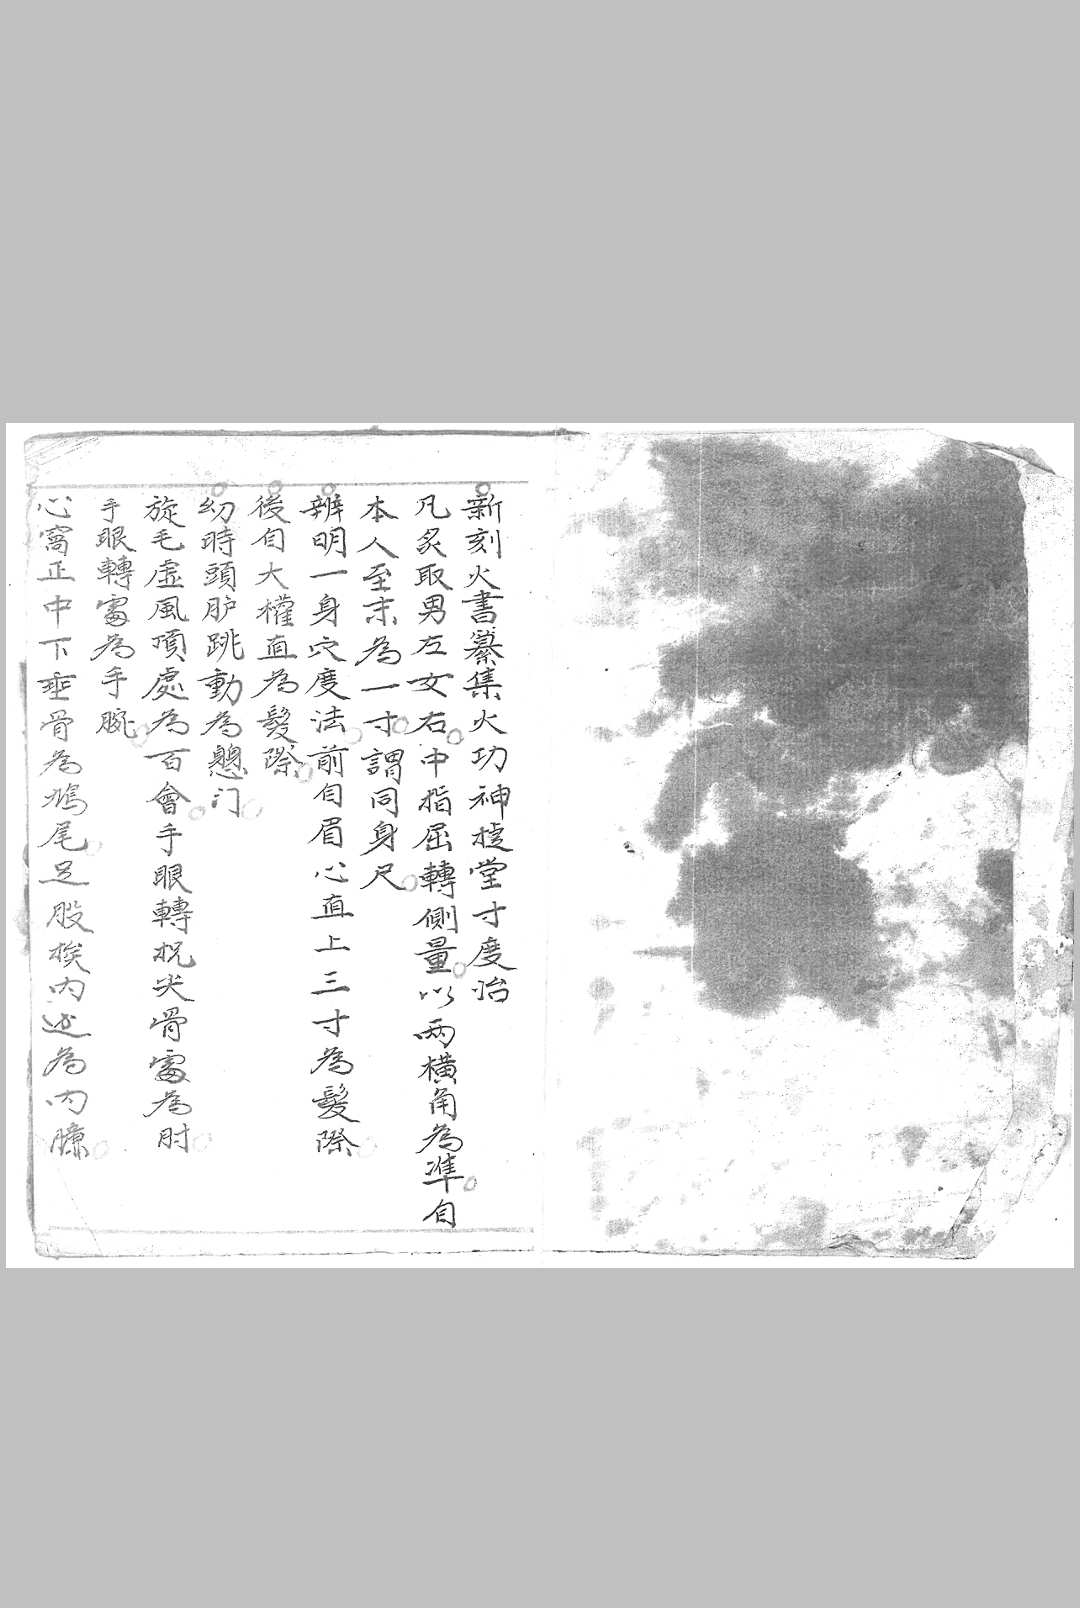 新刻火書纂集火功神挺堂寸度治
凡炙取男左女右中指屈轉側量以两橫角為準自
本人至末為一寸謂同身尺
辨明一身穴度法前自眉心直上三寸為髮際
後自大權直為髮際
幼時頭胪跳動為䫥门
旋毛虚風項處為百會手眼轉柷尖骨𡩋為肘
手眼轉𡩋為手腕
心窩正中下垂骨為鳩尾足股挨内边為内臁